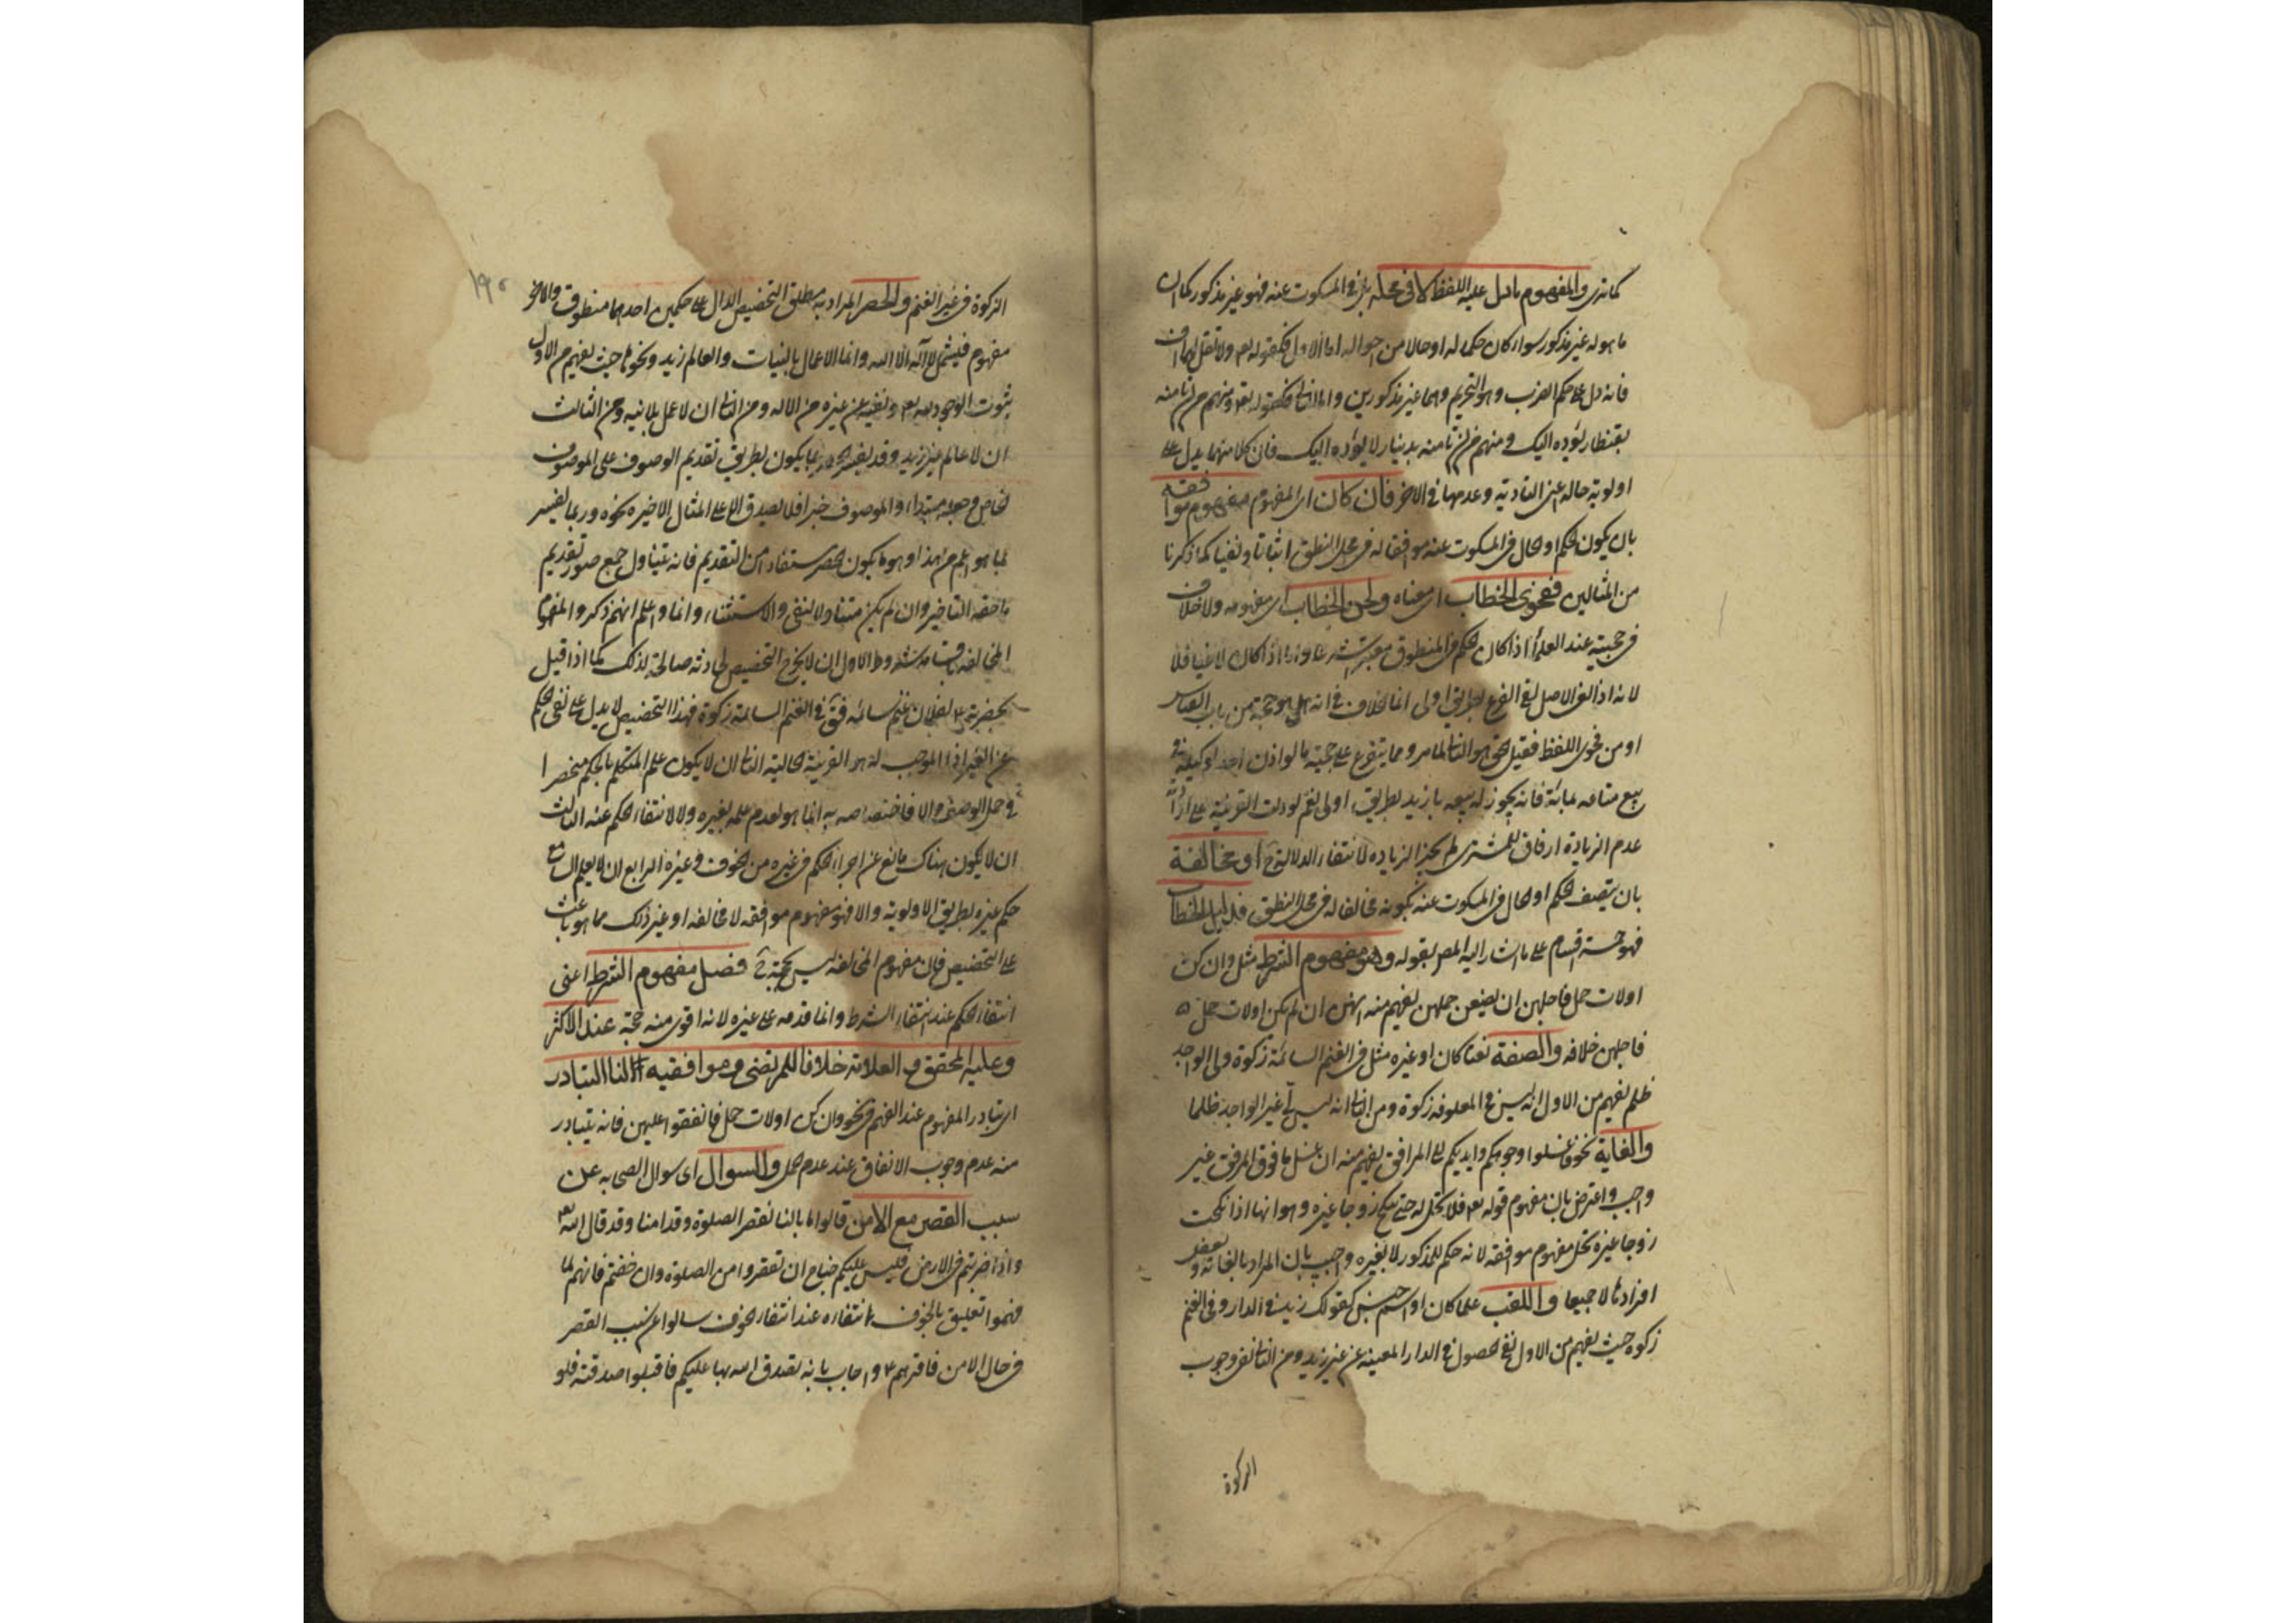 كما ترى والمفهوم ما دل عليه اللفظ لا في محله بل في المسكوت عنه فهو غير مذكور كما ان
ما هو له غير مذكور سواء كان حكما له او حالا من احواله اما الاول فكقوله تع ولا تقل لهما اف
فانه دل على حكم الضرب وهو التحريم وهما غير مذكورين واما الثانى فكقوله تع ومنهم من ان تأمنه
بقنطار يؤده اليك ومنهم من ان تأمنه بدينار لا يؤده اليك فان كلا منهما يدل على
اولوية حاله اعنى التادية وعدمها في الاخر فان كان اى المفهوم مفهوم موافقه
بان يكون الحكم او الحال في المسكوت عنه موافقا له في محل النطق اثباتا ونفيا كما ذكرنا
من المثالين ففحوى الخطاب اى معناه ولحن الخطاب اى مفهومه ولا خلاف
في حجيته عند العلماء اذا كان الحكم في المنطوق معتبرا شرعا واما اذا كان لاغيا فلا
لانه اذا لغى الاصل لغى الفرع بطريق اولى انما الخلاف في انه هل هو حجة من باب القياس
او من فحوى اللفظ فقيل هو الثانى لما مر ومما يتفرع على حجيته ما لو اذن احد لوكيله في
بيع متاعه بمائة فانه يجوز له بيعه بازيد بطريق اولى نعم لو دلت القرينة على ارادة
عدم الزيادة ارفاقا للمشترى لم يجز الزياده لانتفاء الدلالة ح او مخالفة
بان يتصف الحكم او الحال في المسكوت عنه بكونه مخالفا له في محل النطق فدليل الخطاب
فهو خمسة اقسام على ما اشار اليه المص بقوله وهو مفهوم الشرط مثل وان كن
اولات حمل فاجلهن ان يضعن حملهن يفهم منه انهن ان لم يكن اولات حمل
فاجلهن خلافه والصفة نعتا كان او غيره مثل في الغنم السائمة زكوة ولى الواجد
ظلم يفهم من الاول انه ليس في المعلوفه زكوة ومن الثانى انه ليس لى غير الواجد ظلما
والغاية نحو فاغسلوا وجوهكم وايديكم الى المرافق يفهم منه ان غسل ما فوق المرفق غير
واجب واعترض بان مفهوم قوله تع فلا تحل له حتى تنكح زوجا غيره وهو انها اذا نكحت
زوجا غيره تحل مفهوم موافقه لانه حكم للمذكور لا لغيره واجيب بان المراد بالغاية بعض
افرادها لا جميعا واللقب علما كان او اسم جنس كقولك زيد في الدار وفى الغنم
زكوه حيث يفهم من الاول نفى الحصول في الدار المعينه عن غير زيد ومن الثانى نفى وجوب
الزكوة
١٩٠
الزكوة في غير الغنم والحصر المراد به مطلق التخصيص الدال على حكمين احدهما منطوق والاخر
مفهوم فليشمل لا آله الا الله وانما الاعمال بالنيات والعالم زيد ونحوها حيث يفهم من الاول
ثبوت الوجود له تع ونفيه عن غيره من الاله ومن الثانى ان لا عمل بلا نيه ومن الثالث
ان لا عالم غير زيد وقد يفسر الحصر بما يكون بطريق تقديم الوصوف على الموصوف
الخاص وجعله مبتداء والموصوف خبرا فلا يصدق الا على المثال الاخير ونحوه وربما يفسر
بما هو اعم من هذا وهو ما يكون الحصر مستفادا من التقديم فانه يتناول جميع صور تقديم
ما حقه التاخير وان لم يكن متناولا للنفى والاستثناء وانما واعلم انهم ذكروا لمفهوم
المخالفة شروطا الاول ان لا يخرج التخصيص لحادثه صالحة لذلك كما اذا قيل
بحضرته ع لفلان غنم سائمه فق في الغنم السائمة زكوة فهذا التخصيص لا يدل على نفى الحكم
عن الغير اذ الموجب له هو القرينة الحالية الثانى ان لا يكون علم المتكلم بالحكم منحصرا
في محل الوصف والا فاختصاصه به انما هو لعدم علمه بغيره ولا لانتفاء الحكم عنه الثالث
ان لا يكون هناك مانع عن اجراء الحكم في غيره من الخوف وغيره الرابع ان لا يعلم السامع
حكم غيره بطريق الاولوية والا فهو مفهوم موافقه لا مخالفه او غير ذلك مما هو باعث
على التخصيص فان مفهوم المخالفه ليس بحجة ح فصل مفهوم الشرط اعنى
انتفاء الحكم عند انتفاء الشرط وانما قدمه على غيره لانه اقوى منه حجة عند الاكثر
وعليه المحقق والعلامة خلافا للمرتضى وموافقيه لنا التبادر
اى تبادر المفهوم عند الفهم في نحو وان كن اولات حمل فانفقوا عليهن فانه يتبادر
منه عدم وجوب الانفاق عند عدم حمل والسوال اى سوال الصحابه عن
سبب القصر مع الامن قالوا ما بالنا نقصر الصلوة وقد امنا وقد قال الله تع
واذا ضربتم في الارض فليس عليكم جناح ان تقصروا من الصلوة وان خفتم فانهم لما
فهموا تعليق بالخوف انتفاءه عند انتفاء الخوف سالوا عن سبب القصر
في حال الامن فاقرهم ع واجاب بانه تصدق الله بها عليكم فاقبلوا صدقته فلو